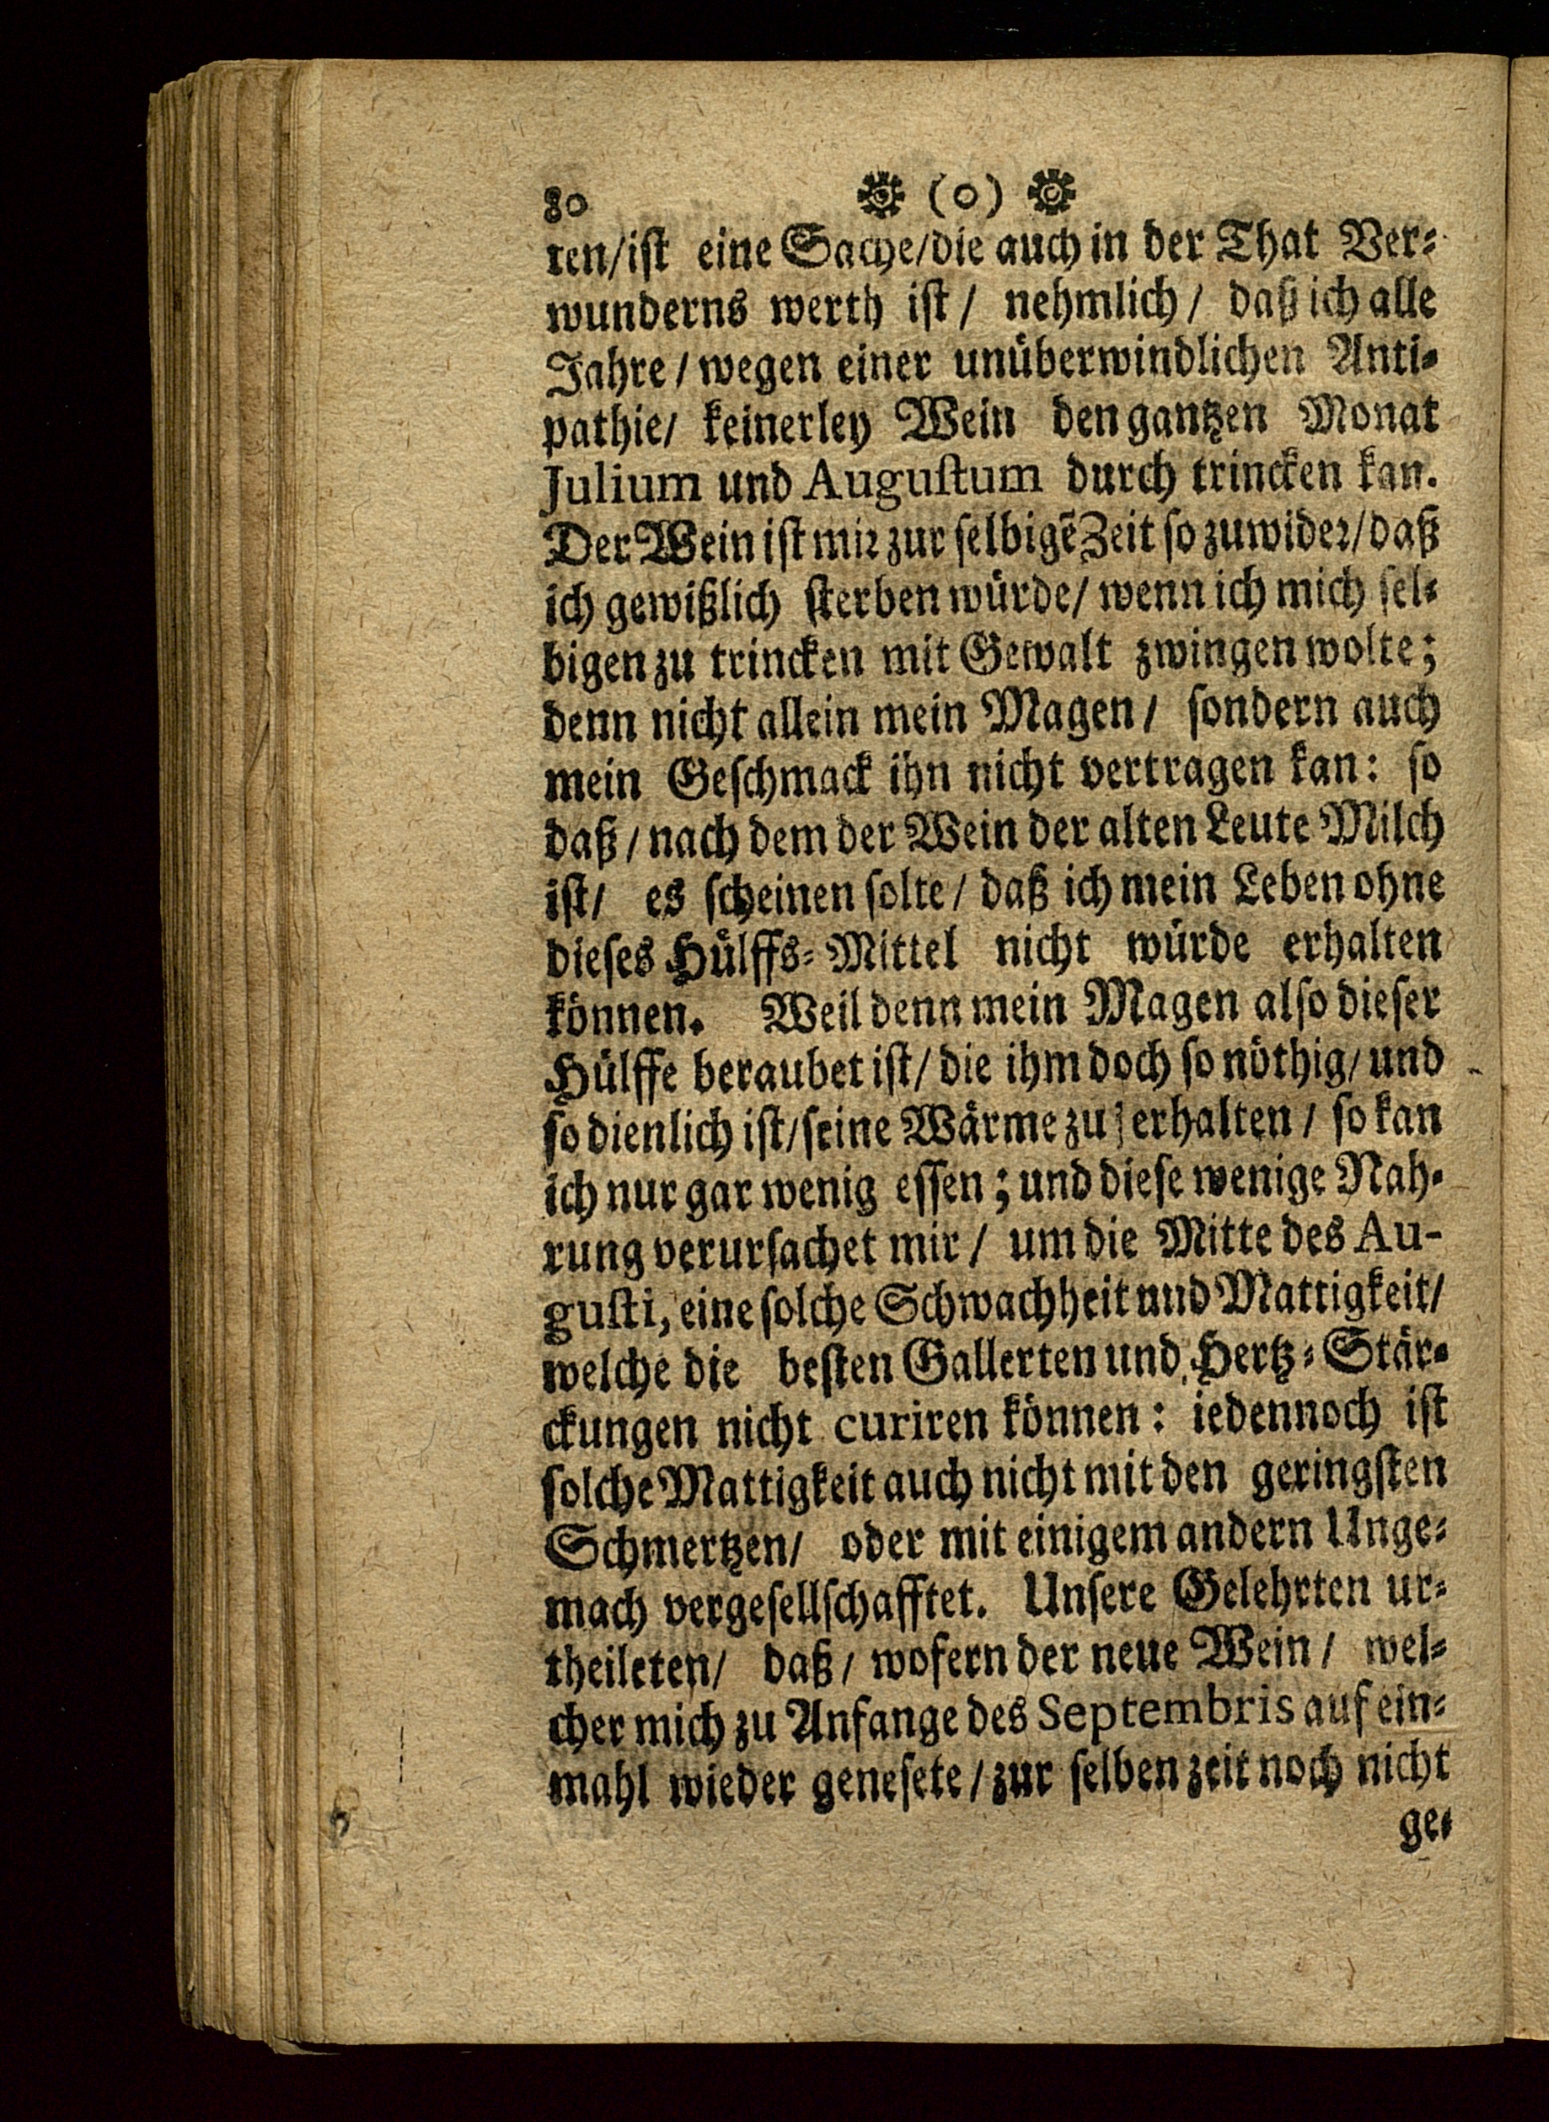 80 (o)
ren/ist eine Sache/die auch in der That Ver-
wunderns werth ist / nehmlich / daß ich alle
Jahre / wegen einer unüberwindlichen Anti-
pathie/ keinerley Wein den gantzen Monat
Julium und Augustum durch trincken kan.
Der Wein ist mir zur selbigẽ Zeit so zuwider/daß
ich gewißlich sterben würde/ wenn ich mich sel-
bigen zu trincken mit Gewalt zwingen wolte;
denn nicht allein mein Magen / sondern auch
mein Geschmack ihn nicht vertragen kan: so
daß / nach dem der Wein der alten Leute Milch
ist/ es scheinen solte / daß ich mein Leben ohne
dieses Hülffs-Mittel nicht würde erhalten
können. Weil denn mein Magen also dieser
Hülffe beraubet ist/ die ihm doch so nöthig/ und
so dienlich ist/seine Wärme zu erhalten / so kan
ich nur gar wenig essen ; und diese wenige Nah-
rung verursachet mir / um die Mitte des Au-
gusti, eine solche Schwachheit und Mattigkeit/
welche die besten Gallerten und Hertz-Stär-
ckungen nicht curiren können : iedennoch ist
solche Mattigkeit auch nicht mit den geringsten
Schmertzen/ oder mit einigem andern Unge-
mach vergesellschafftet. Unsere Gelehrten ur-
theileten/ daß / wofern der neue Wein / wel-
cher mich zu Anfange des Septembris auf ein-
mahl wieder genesete / zur selben zeit noch nicht
ge-